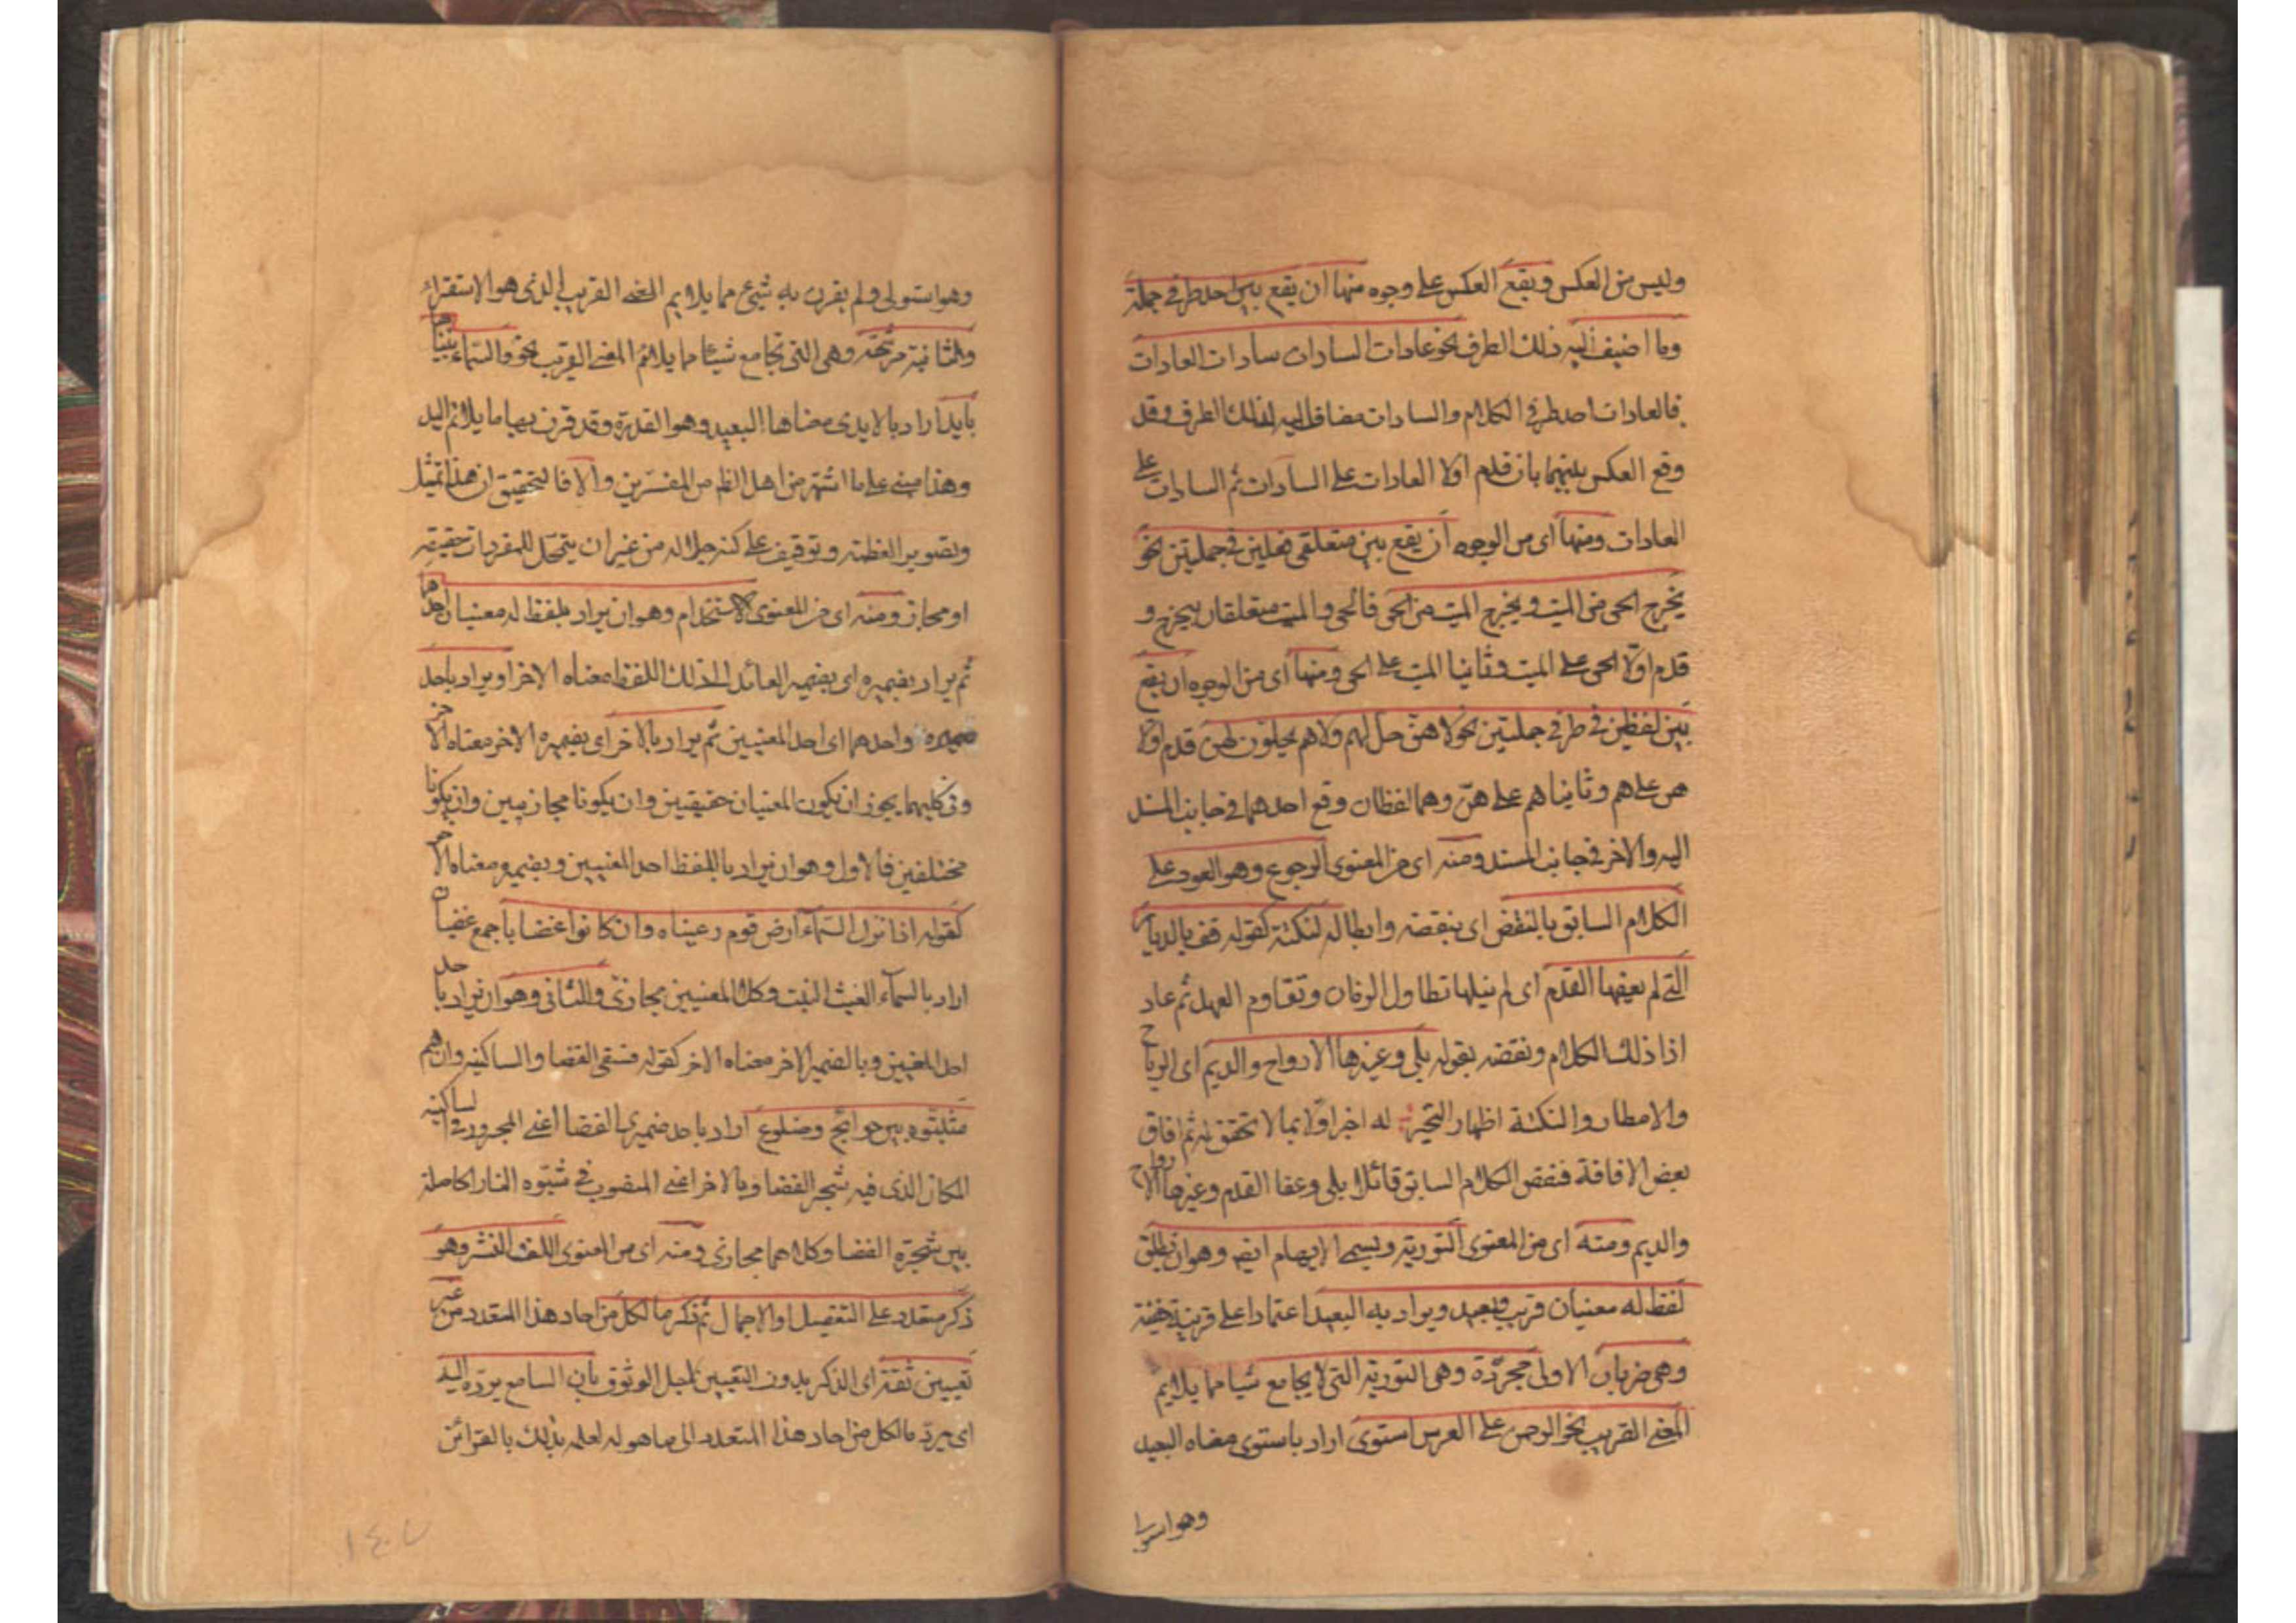 وليس من العكس ويقع العكس على وجوه منها ان يقع بين احد طرفي جملة
وما اضيف اليه ذلك الطرف نحو عادات السادات سادات العادات
فالعادات احد طرفي الكلام والسادات مضاف اليه لذلك الطرف وقد
وقع العكس بينهما بان قدم اولا العادات على السادات ثم السادات على
العادات ومنها اى من الوجوه ان يقع بين متعلقى فعلين في جملتين نحو
يخرج الحى من الميت ويخرج الميت من الحى فالحى والميت متعلقان بيخرج و
قدم اولا الحى على الميت وثانيا الميت على الحى ومنها اى من الوجوه ان يقع
بين لفظين في طرفي جملتين نحو لا هن حل لهم ولا هم يحلون لهن قدم اولا
هن على هم وثانيا هم على هن وهما لفظان وقع احدهما في جانب المسند
اليه والاخر في جانب المسند ومنه اى من المعنوى الرجوع وهو العود على
الكلام السابق بالنقض اى بنقضه وابطاله لنكتة كقوله قف بالديار
التى لم يعفها القدم اى لم يبلها تطاول الزمان وتقادم العهد ثم عاد
اذا ذلك الكلام ونقضه بقوله بلى وغيرها الارواح والديم اى الرياح
والامطار والنكتة اظهار التحير له اخبر اولا بما لا تحقق له ثم افاق
بعض الافاقة فنقض الكلام السابق قائلا بلى وعفا القدم وغيرها الارواح
والديم ومنه اى من المعنوى التورية ويسمى الايهام ايضا وهو ان يطلق
لفظ له معنيان قريب وبعيد ويراد به البعيد اعتمادا على قرينة خفية
وهى ضربان الاولى مجردة وهى التورية التى لا يجامع شيا مما يلايم
المعنى القريب نحو الرحمن على العرش استوى اراد باستوى معناه البعيد
وهو استولى
وهو استولى ولم يقرن به شيئ مما يلايم المعنى القريب الذى هو الاستقرار
والثانية مرشحة وهى التى تجامع شيئا مما يلائم المعنى القريب نحو والسماء بنيناها
بايد اراد بالايدى معناها البعيد وهو القدرة وقد قرن بها ما يلائم اليد
وهذا مبنى على ما اشتهر من اهل الظاهر من المفسرين والا فالتحقيق ان هذا تمثيل
وتصوير لعظمته وتوقيف على كنه جلاله من غير ان يتمحل للمفردات حقيقة
او مجاز ومنه اى من المعنوى الاستخدام وهو ان يراد بلفظ له معنيان احدهما
ثم يراد بضميره اى بضميره العائد الى ذلك اللفظ معناه الاخر او يراد باحد
ضميره واحدهما اى احد المعنيين ثم يراد بالاخر اى بضميره الاخر معناه الاخر
وفى كليهما يجوز ان يكون المعنيان حقيقين وان يكونا مجازيين وان يكونا
مختلفين فالاول وهو ان يراد باللفظ احد المعنيين وبضميره معناه الاخر
كقوله اذا نزل السماء ارض قوم رعيناه وان كانوا غضابا جمع غضبان
اراد بالسماء الغيث النبت وكلا المعنيين مجازى والثانى وهو ان يراد باحد
احد المعنيين وبالضمير الاخر معناه الاخر كقوله فسقى الغضا والساكنيه وان هم
شبوه بين جوانح وضلوع اراد باحد ضميرى الغضا اعنى المجرور في الساكنيه
المكان الذى فيه شجر الغضا وبالاخر اعنى المنصوب في شبوه النار الحاصلة
بين شجرة الغضا وكلاهما مجازى ومنه اى من المعنوى اللف النشر وهو
ذكر متعدد على التفصيل او الاجمال ثم ذكر ما لكل من احاد هذا المتعدد من غير
تعيين ثقة اى الذكر بدون التعيين لاجل الوثوق بان السامع يرده اليه
اى يرد ما لكل من احاد هذا المتعدد الى ما هو له لعلمه بذلك بالقرائن